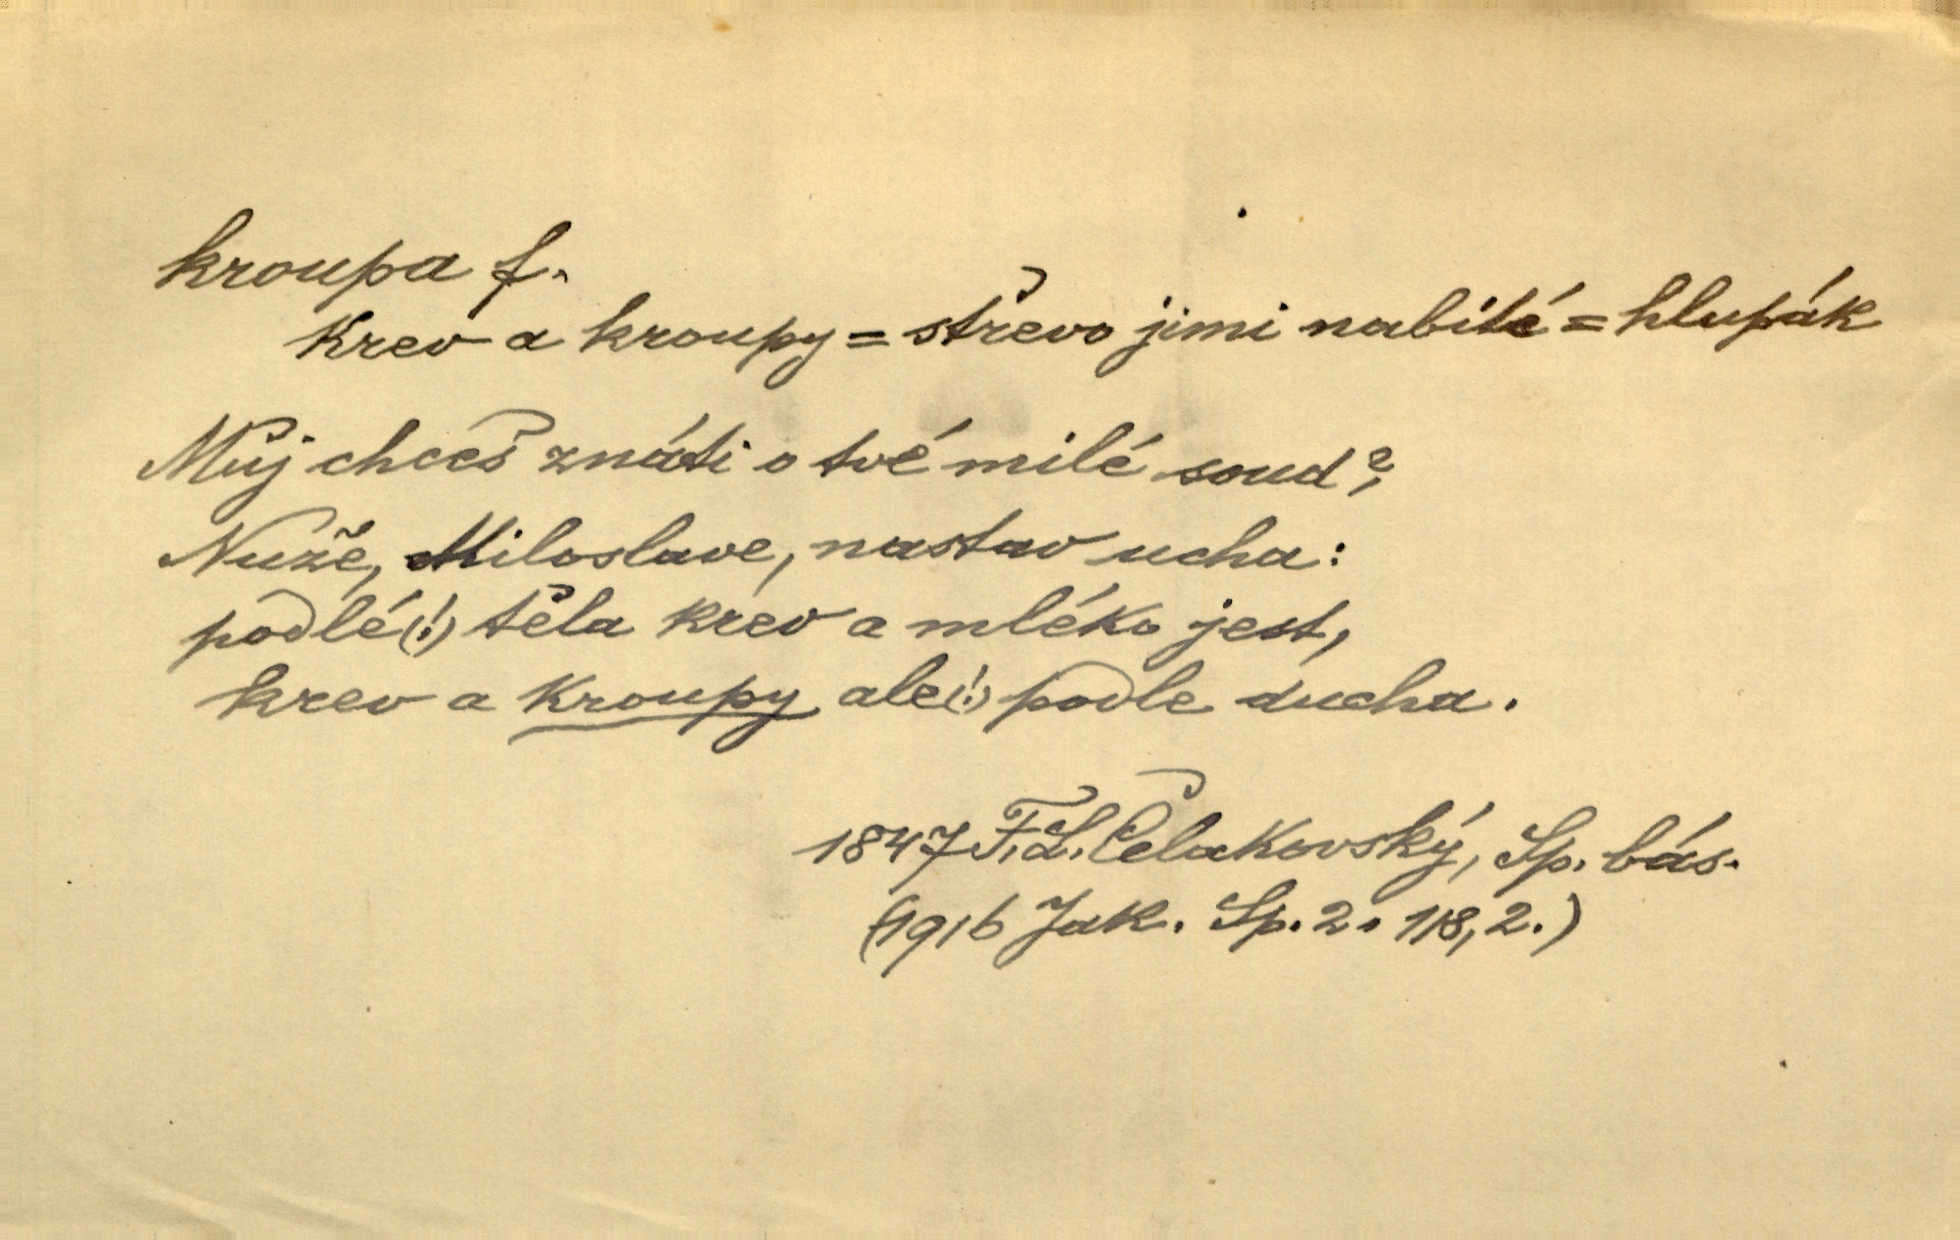 kroupa f.
Krev a kroupy = střevo jimi nabité = hlupák
Můj chceš znáti o tvé milé soud?
Nuže, Miloslave, nastav ucha:
podlé(!) těla krev a mléko jest,
krev a kroupy ale(!) podle ducha.
1847 F. L. Čelakovský, Sp. bás.
(1916 Jak. Sp. 2. 118, 2.)